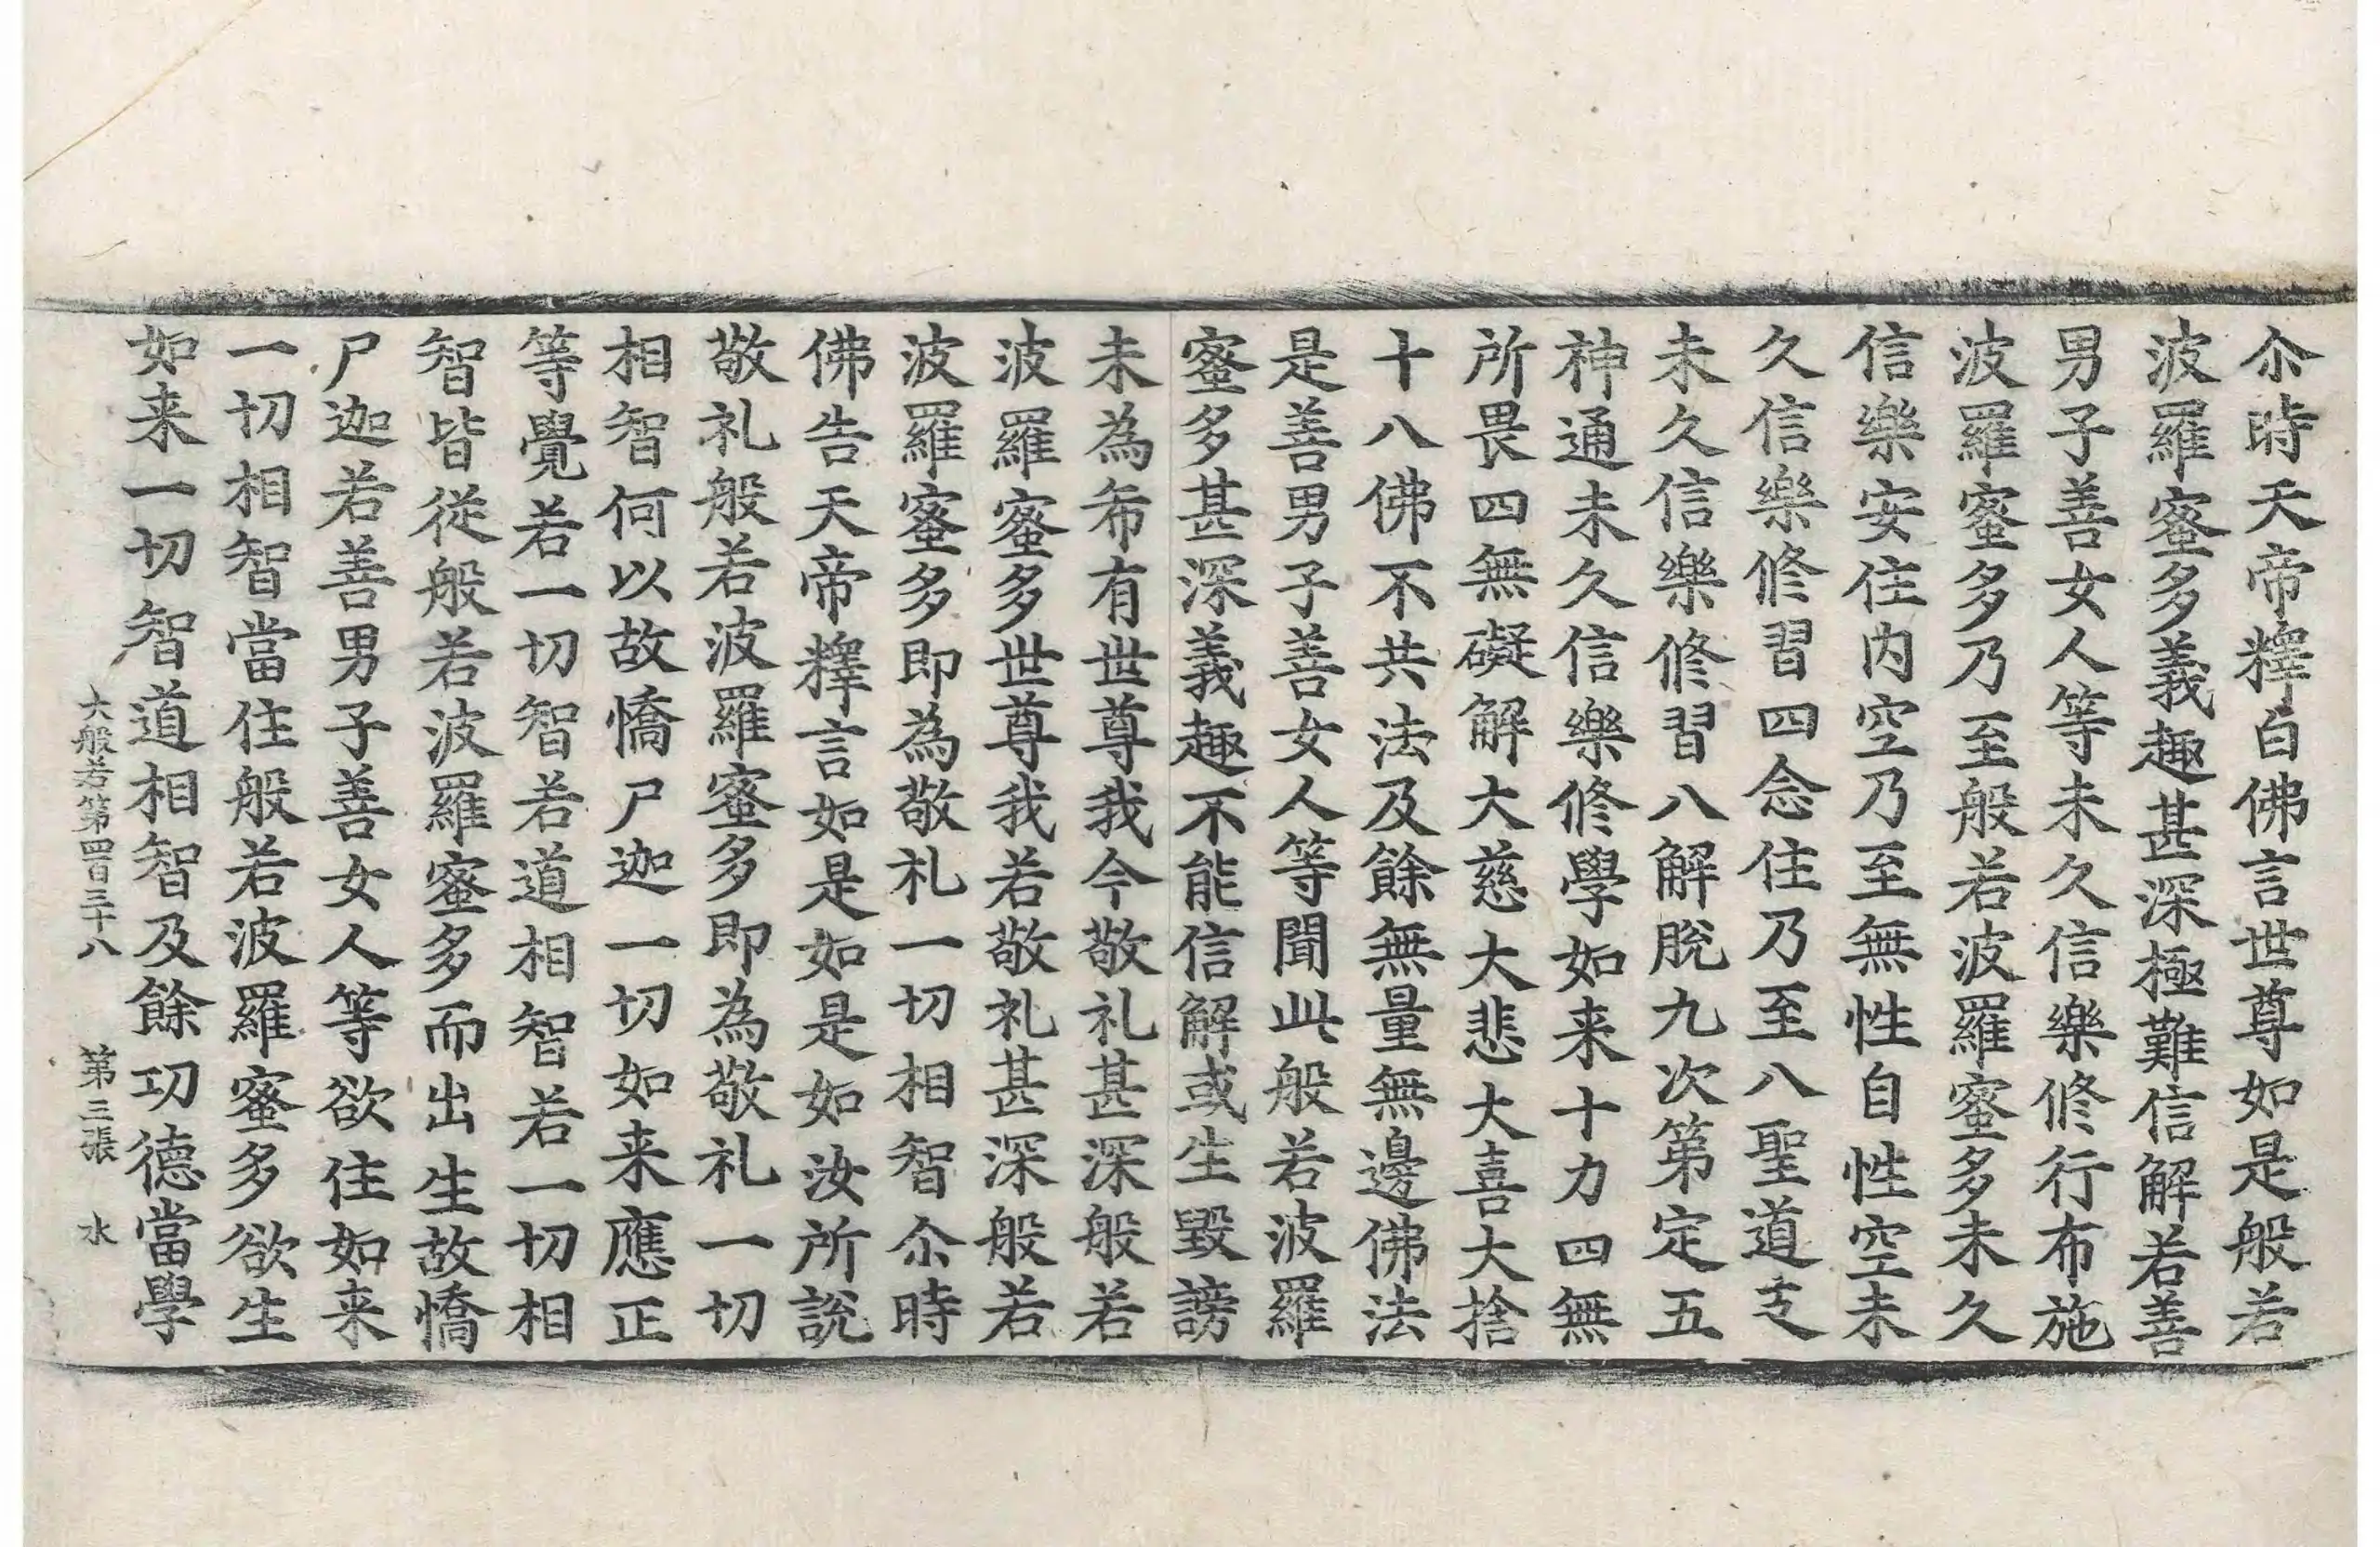 尒時天帝釋白佛言世尊如是般若
波羅蜜多義趣甚深極難信解若善
男子善女人等未久信樂修行布施
波羅蜜多乃至般若波羅蜜多未久
信樂安住内空乃至無性自性空未
久信樂修習四念住乃至八聖道支
未久信樂修習八解脫九次第定五
神通未久信樂修學如来十力四無
所畏四無礙解大慈大悲大喜大捨
十八佛不共法及餘無量無邊佛法
是善男子善女人等聞此般若波羅
蜜多甚深義趣不能信解或生毀謗
未為希有世尊我今敬礼甚深般若
波羅蜜多世尊我若敬礼甚深般若
波羅蜜多即為敬礼一切相智尒時
佛告天帝釋言如是如是如汝所說
敬礼般若波羅蜜多即為敬礼一切
相智何以故憍尸迦一切如来應正
等覺若一切智若道相智若一切相
智皆從般若波羅蜜多而出生故憍
尸迦若善男子善女人等欲住如来
一切相智當住般若波羅蜜多欲生
如来一切智道相智及餘功德當學
大般若第四百三十八 第三張 水